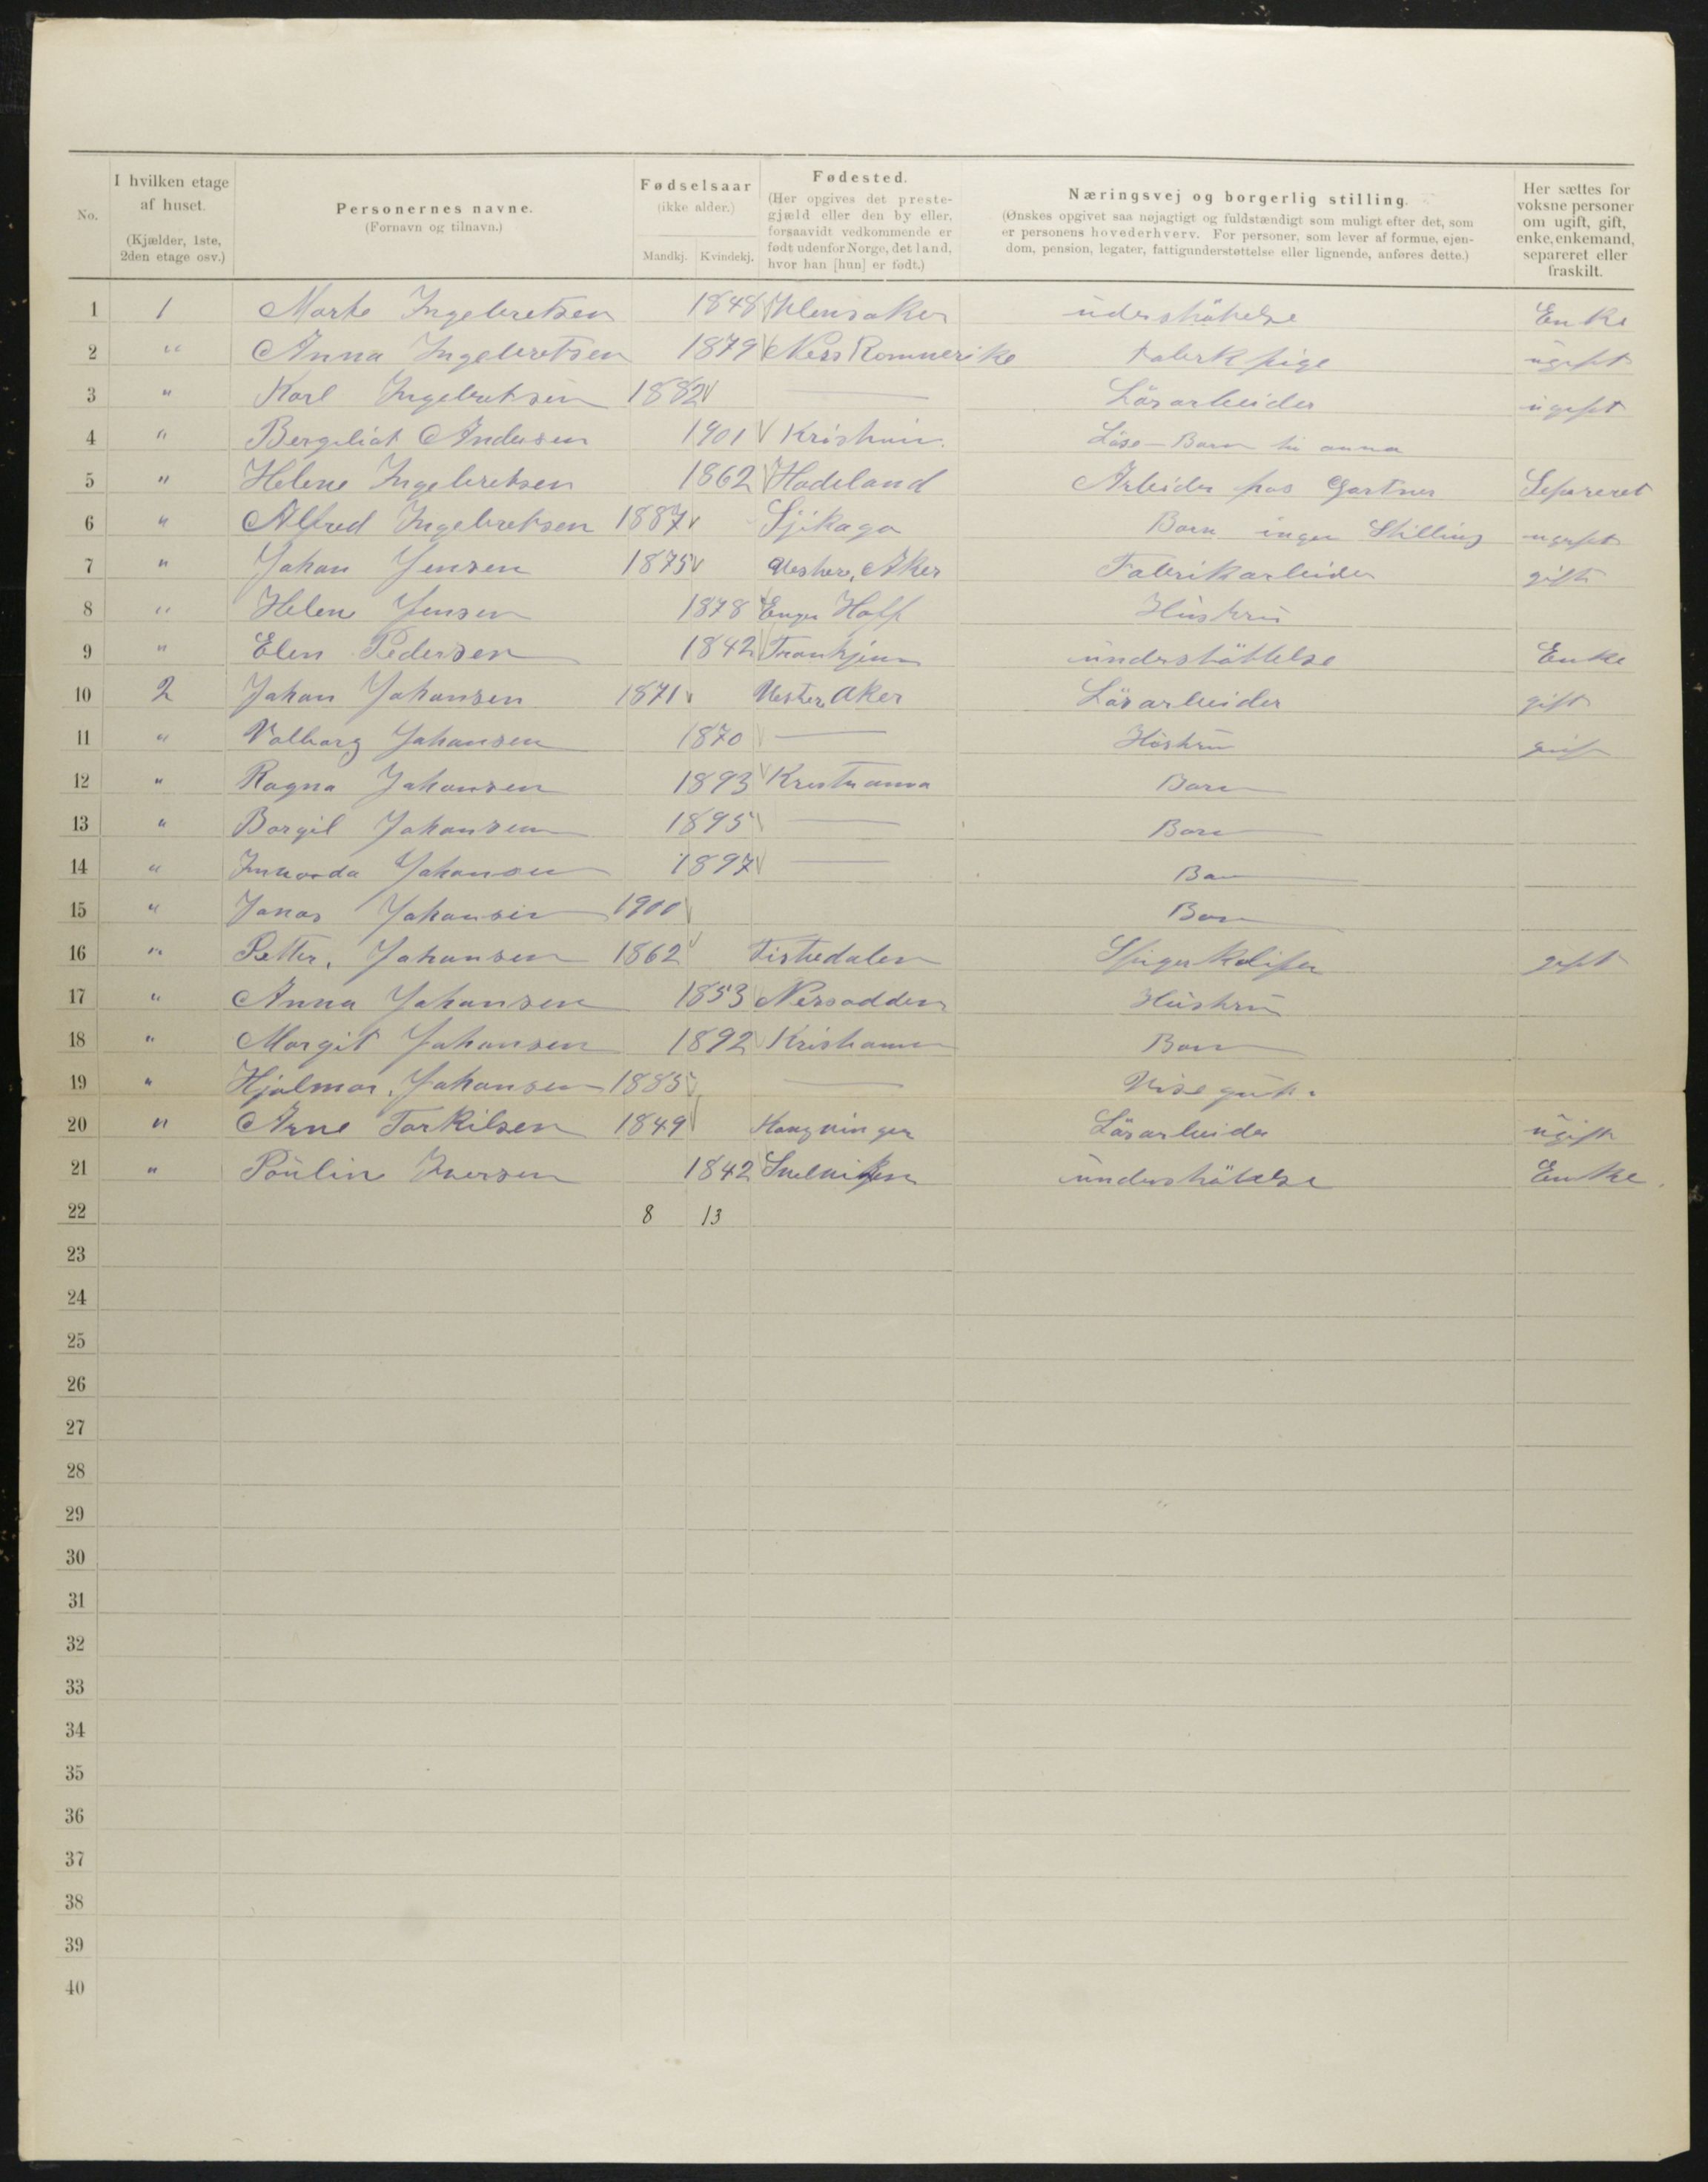 No.
I hvilken etage
af huset.
(Kjælder, 1ste,
2den etage osv.)
Personernes navne.
(Fornavn og tilnavn.)
Fødselsaar
(ikke alder.)
Mandkj. Kvindekj.
Fødested.
(Her opgives det preste-
gjæld eller den by eller,
forsaavidt vedkommende er
født udenfor Norge, det land,
hvor han [hun] er født.)
Næringsvej og borgerlig stilling.
(Ønskes opgivet saa nøjagtigt og fuldstændigt som muligt efter det, som
er personens hovederhverv. For personer, som lever af formue, ejen-
dom, pension, legater, fattigunderstøttelse eller lignende, anføres dette.)
Her sættes for
voksne personer
om ugift, gift,
enke, enkemand,
separeret eller
fraskilt.
1 1 Marte Ingebretsen 1848 Ulensaker understötelse Enke
2 " Anna Ingebretsen 1879 Ness Romnerike Fabrkpige ugift
3 " Karl Ingebretsen 1882 — Lösarbeider ugift
4 " Andersen 1901 Löse-Barn til anna
5 " Helene Ingebretsen 1862 Hadeland Arbeider hos Gartner Separeret
6 " Alfred Ingebretsen 1887 Sjikago Barn ingen Stilling ugift
7 " Johan Jensen 1875 Vestre, Aker Fabrikarbeider gift
8 " Helene Jensen 1878 Hoff Hüstrü
9 " Elen Pedersen 1842 Tronhjem understöttelse Enke
10 2 Johan Johansen 1871 Vestre Aker Lösarbeider gift
11 " Valborg Johansen 1870 — Hüstrü gift
12 " Ragna Johansen 1893 Kristianna Barn
13 " Borgil Johansen 1895 — Barn
14 " Johansen 1897 — Barn
15 " Jonas Johansen 1900 Barn
16 " Petter, Johansen 1862 Tistedalen gift
17 " Anna Johansen 1853 Nersodden Hüstrü
18 " Margit Johansen 1892 Barn
19 " Hjalmar, Johansen 1885 — Vise gut
20 " Arne Torkilsen 1849 Kongvinger Lösarbeider ugift
21 " Poulin Iversen 1842 understötelse Enke
22 8 13
23
24
25
26
27
28
29
30
31
32
33
34
35
36
37
38
39
40